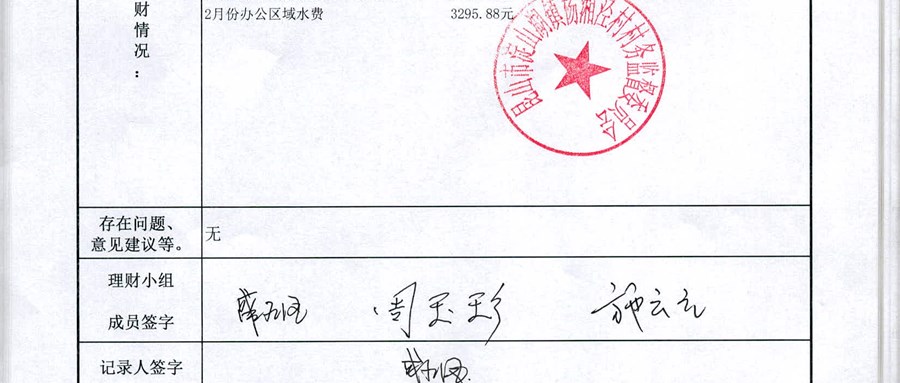 财情况：
2月份办公区域水费 3295.88元
昆山市淀山湖镇杨湘泾村村务监督委员会
存在问题、
意见建议等。
无
理财小组
成员签字
周玉珍
记录人签字